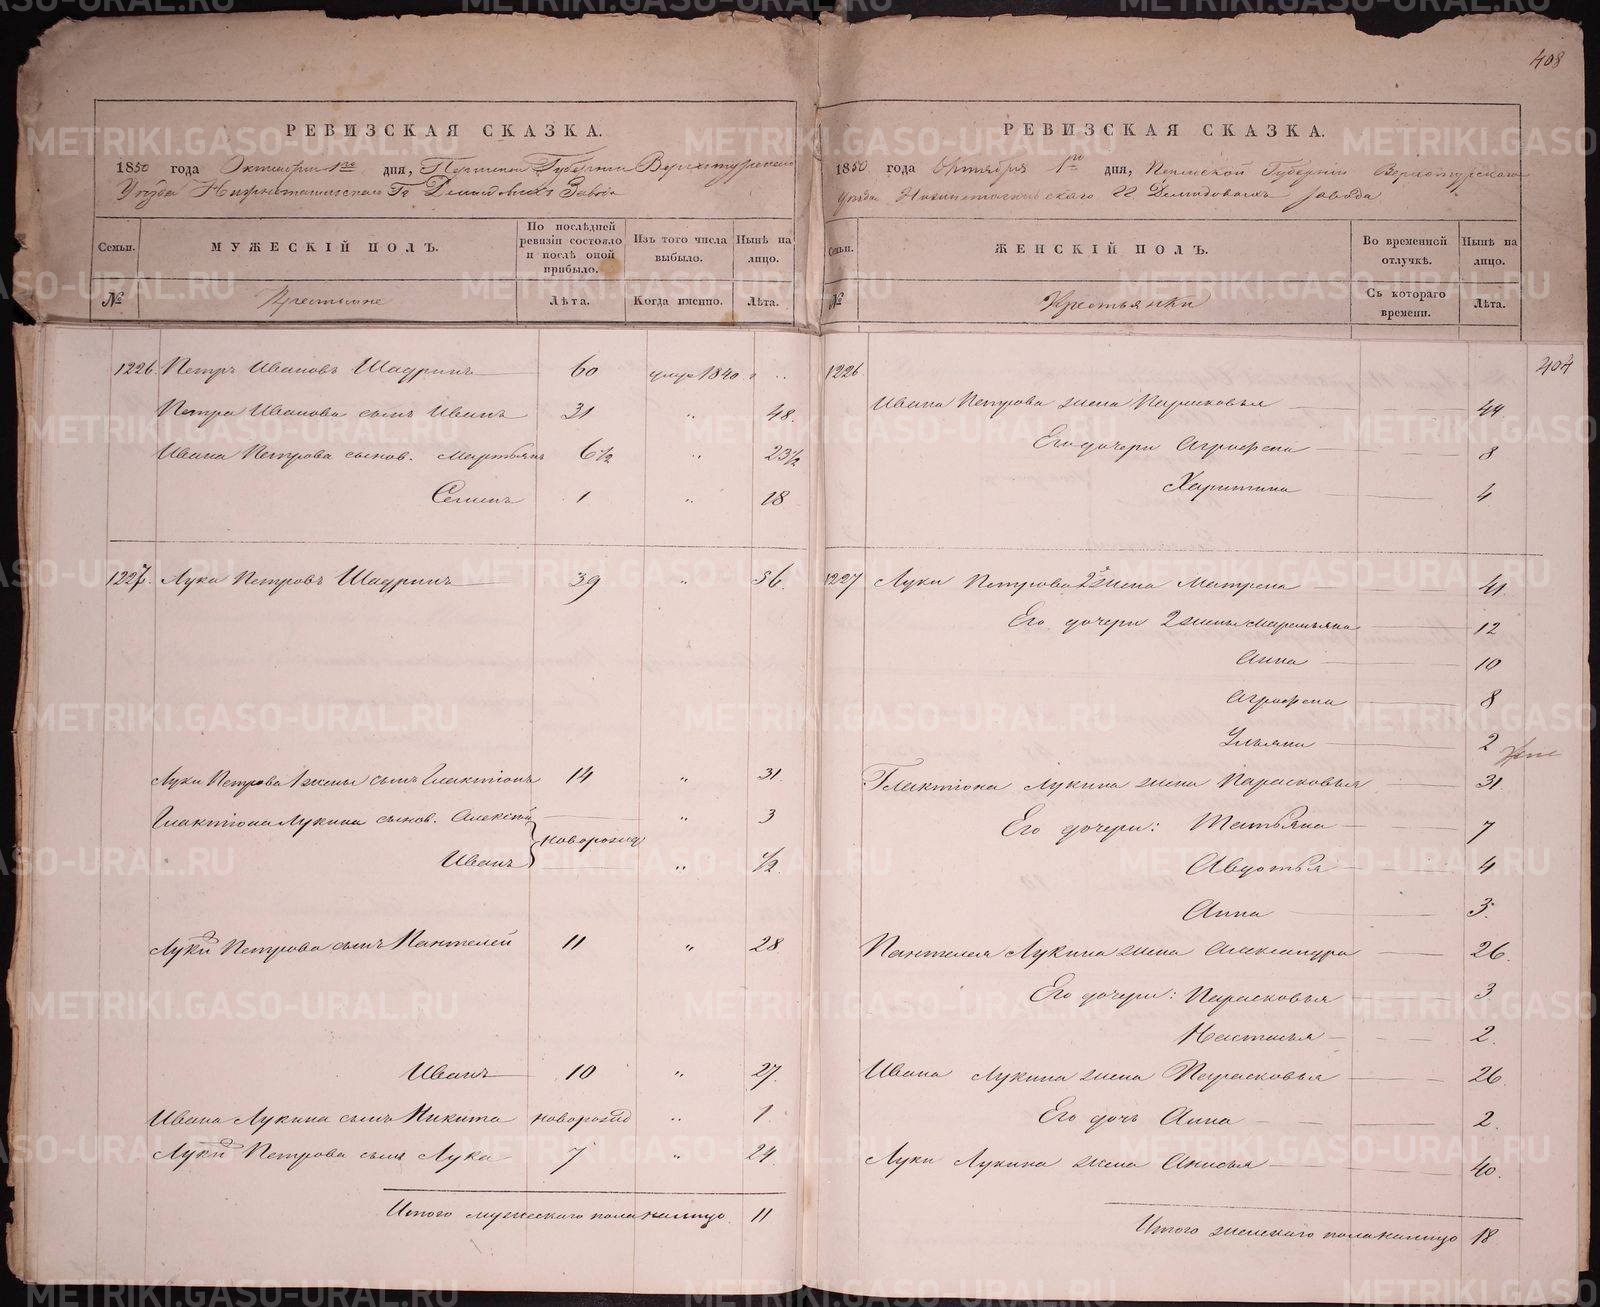 408
РЕВИЗСКАЯ СКАЗКА.
1850 года Октября 1го дня, Пермской Губернии Верхотурскаго
Уѣзда Нижнетагильскаго Гг. Демидовыхъ Завода
Семьи.
МУЖЕСКІЙ ПОЛЪ.
По послѣдней ревизіи состояло и послѣ оной прибыло.
Изъ того числа выбыло.
Нынѣ на лицо.
№
Крестьяне
Лѣта.
Когда именно.
Лѣта.
1226. Петръ Ивановъ Шадринъ 60 умре 1840.
Петра Иванова сынъ Иванъ 31 " 48.
Ивана Петрова сынов. Мартьянъ 6 1/2 " 23 1/2
Семенъ 1 " 18
1227. Лука Петровъ Шадринъ 39 " 56.
Луки Петрова 1 жены сынъ Галактіонъ 14 " 31
Галактіона Лукина сынов. Алексѣй новорожд " 3
Иванъ " 1/2.
Луки Петрова сынъ Пантелей 11 " 28.
Иванъ 10 " 27.
Ивана Лукина сынъ Никита новорожд " 1.
Луки Петрова сынъ Лука 7 " 24.
Итого мужескаго пола налицо 11
РЕВИЗСКАЯ СКАЗКА.
1850 года Октября 1го дня, Пермской Губерніи Верхотурскаго
Уѣзда Нижнетагильскаго гг. Демидовыхъ завода
Семьи.
ЖЕНСКІЙ ПОЛЪ.
Во временной отлучкѣ.
Нынѣ на лицо.
№
Крестьянки
Съ котораго времени.
Лѣта.
404
1226
Ивана Петрова жена Парасковья 44.
Его дочери Аграфена 8
Харитина 4
1227 Луки Петрова 2я жена Матрена 41.
Его дочери 2 жены Маремьяна 12
Анна 10
Аграфена 8
Ульяна 2
Галактіона Лукина жена Парасковья 31.
Его дочери: Татьяна 7
Авдотья 4
Анна 3.
Пантелея Лукина жена Александра 26.
Его дочери: Парасковья 3
Настасья 2.
Ивана Лукина жена Парасковья 26.
Его дочь Анна 2.
Луки Лукина жена Анисья 40.
Итого женскаго пола налицо 18
METRIKI.GASO-URAL.RU